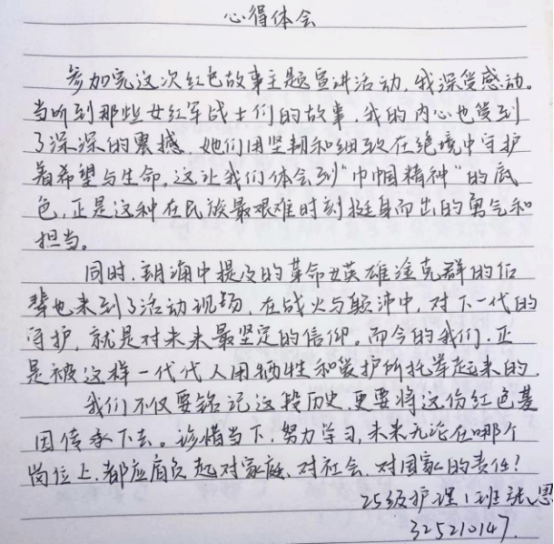 心得体会
参加完这次红色故事主题宣讲活动,我深受感动。
当听到那些女红军战士们的故事,我的内心也受到
了深深的震撼,她们用坚韧和细致在绝境中守护
着希望与生命,这让我们体会到“巾帼精神”的底
色,正是这种在民族最艰难时刻挺身而出的勇气和
担当。
同时,朗诵中提及的革命英雄涂克群的后
辈也来到了活动现场,在战火与颠沛中,对下一代的
守护,就是对未来最坚定的信仰。而今的我们,正
是被这样一代代人用牺牲和爱护所托举起来的,
我们不仅要铭记这段历史,更要将这份红色基
因传承下去。珍惜当下,努力学习,未来无论在哪个
岗位上,都应肩负起对家庭、对社会、对国家的责任!
25级护理1班张思
325210147.